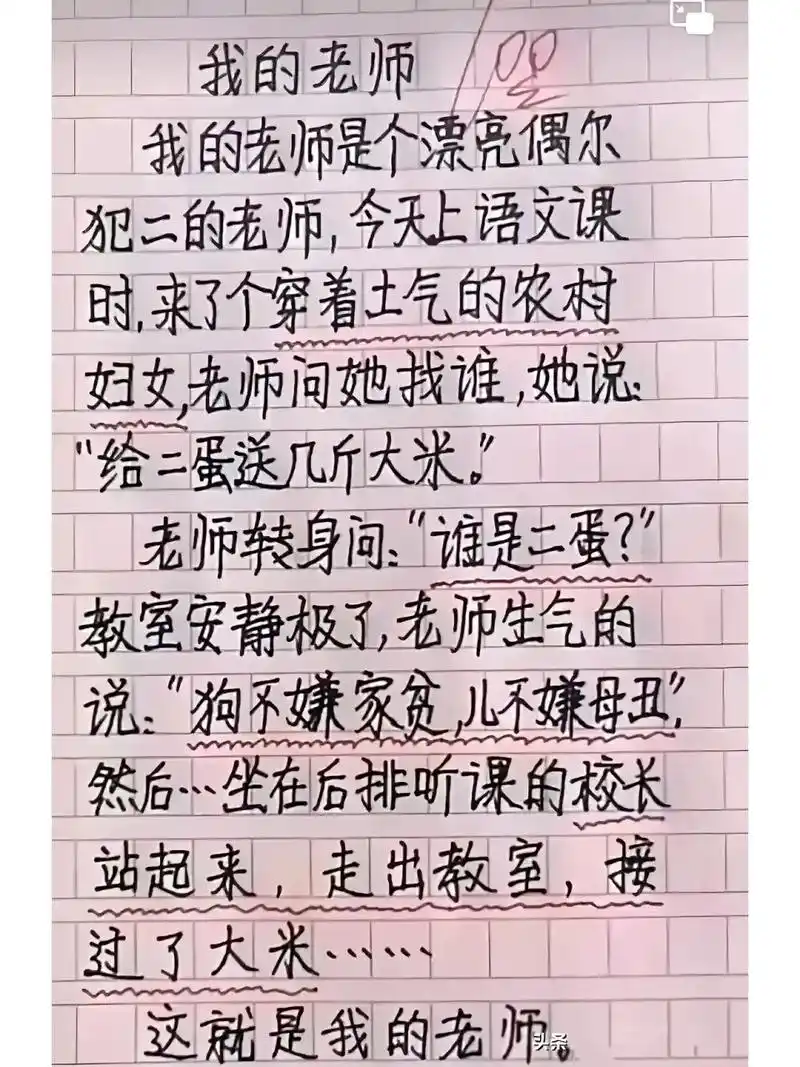 我的老师
我的老师是个漂亮偶尔
犯二的老师,今天上语文课
时,来了个穿着土气的农村
妇女,老师问她找谁,她说:
“给二蛋送几斤大米。”
老师转身问:“谁是二蛋?”
教室安静极了,老师生气的
说:“狗不嫌家贫,儿不嫌母丑”,
然后…坐在后排听课的校长
站起来,走出教室,接
过了大米……
这就是我的老师。
头条